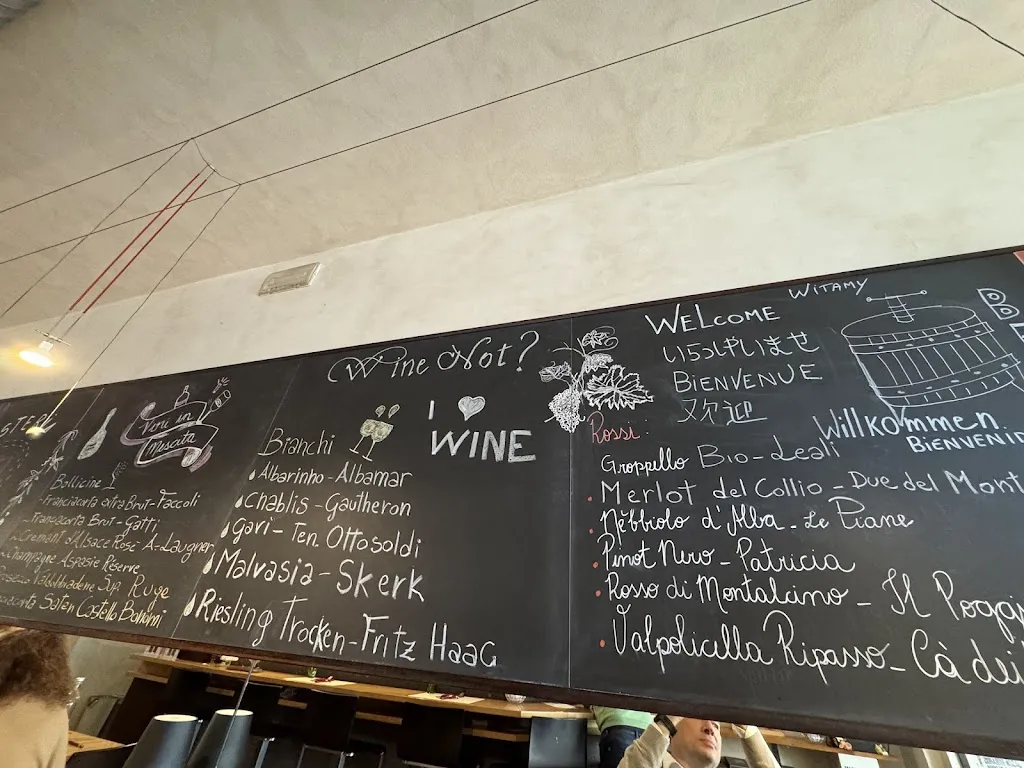 Vini in
Mescita
Bollicine
- Franciacorta extra Brut - Faccoli
- Franciacorta Brut - Gatti
- Cremant d'Alsace Rosé A. Laugner
Champagne Aspasie Réserve
Valdobbiadene Sup. Ruge
Saten Castello Bonomi
Wine Not?
I
WINE
Bianchi
Albarinho - Albamar
Chablis - Gautheron
Gavi - Ten. Ottosoldi
Malvasia - Skerk
Riesling Trocken - Fritz Haag
WITAMY
WELCOME
いらっしゃいませ
BIENVENUE
欢迎
Willkommen
BIENVENID
Rossi
Groppello Bio - Leali
Merlot del Collio - Due del Mont
Nebbiolo d'Alba - Le Piane
Pinot Nero - Patricia
Rosso di Montalcino - Il Poggi
Valpolicella Ripasso - Cà dei